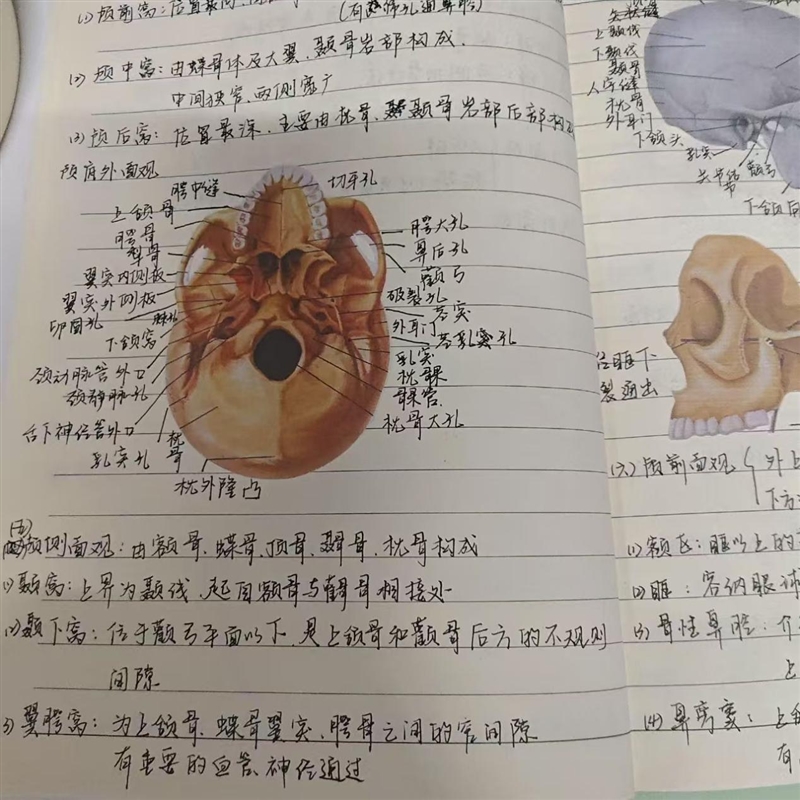 (1) 颅前窝：位置最
(有筛孔通鼻腔)
(2) 颅中窝：由蝶骨体及大翼、颞骨岩部构成.
中间狭窄，两侧宽广
(3) 颅后窝：位置最深，主要由枕骨、颞骨岩部后部构
颅底外面观
腭中缝
切牙孔
上颌骨
腭骨
犁骨
翼突内侧板
翼突外侧板
卵圆孔
棘孔
下颌窝
颈动脉管外口
颈静脉孔
舌下神经管外口
乳突孔
枕骨
枕外隆凸
腭大孔
鼻后孔
颧弓
破裂孔
茎突
外耳门
茎乳突孔
乳突
枕髁
髁管
枕骨大孔
(五)
颅侧面观：由额骨、蝶骨、顶骨、颞骨、枕骨构成
(1) 颞窝：上界为颞线，起自额骨与颧骨相接处
(2) 颞下窝：位于颧弓平面以下，是上颌骨和颧骨后方的不规则
间隙
(3) 翼腭窝：为上颌骨、蝶骨翼突、腭骨之间的窄间隙
有重要的血管、神经通过
上颞线
下颞线
颞骨
人字缝
枕骨
外耳门
下颌头
乳突
关节结节
颧弓
下颌
径眶下
裂通出
(六) 颅前面观
外上
下方
(1) 额区：眶以上的
(2) 眶：容纳眼球
(3) 骨性鼻腔：介
上
(4) 鼻旁窦：上
有